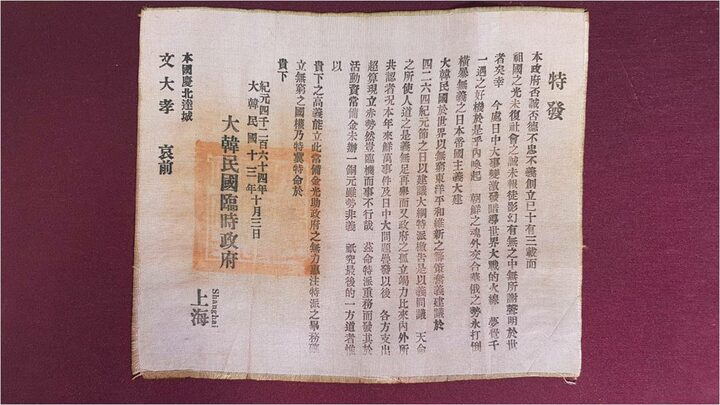 特發
本政府否誠否德不忠不義創立已十有三載而
祖國之光未復社會之誠未報徒影幻有無之中無所謝聲明於世
者矣幸 今處日中大事變激發暗導世界大戰的火線 夢覺千
一遇之好機於是乎內喚起 朝鮮之魂外交合華俄之勢永打倒
橫暴無義之日本帝國主義大建
大韓民國於世界以無窮東洋平和維新之籌策奮義建議於
四二六四紀元節之日以建議大綱特派檄告是以義同議 天命
之所使人道之是義無足再舉而又政府之孤立竭力比來內外所
共認者況本年來鮮萬事件及日中大問題疊發以後 各方支出
超算現立赤勢然豈臨機而事不行哉 茲命特派重務而發其於
活動資常備金未辦一個元雖勢非義 祇究最後的一方道者惟
以
貴下之高義能立此常備金光助政府之無力專注特派之畢務確
立無窮之國權乃特冀特命於
貴下
紀元四千二百六十四年
大韓民國十三年十月三日
大韓民國臨時政府
上海
Shanghai
本國慶北達城
文大孝 哀前